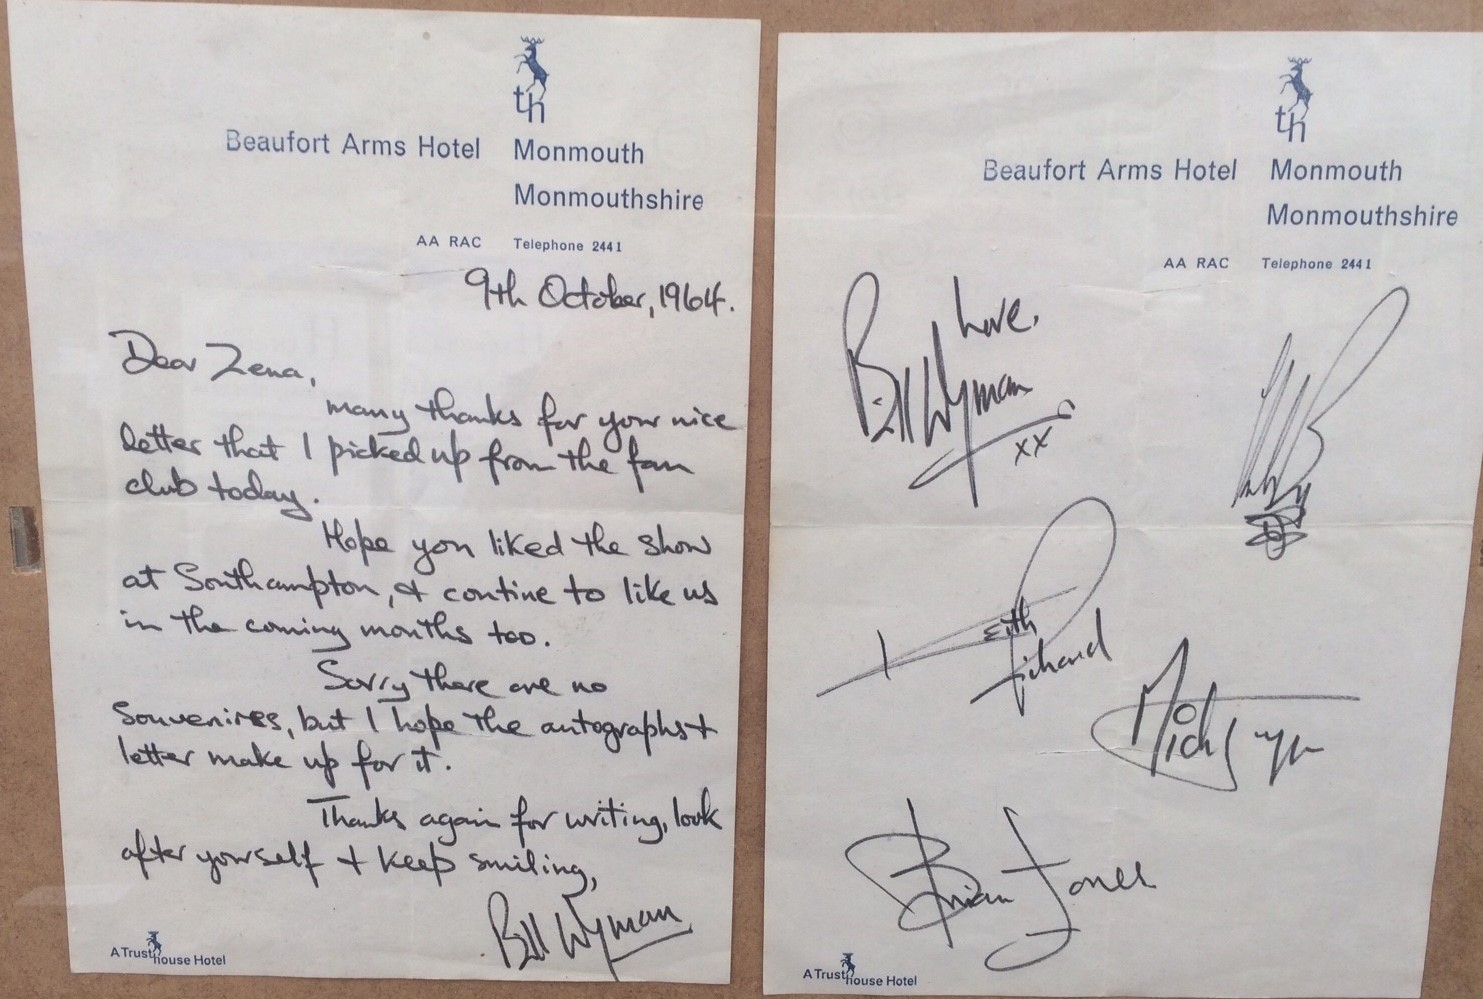 th
Beaufort Arms Hotel Monmouth
Monmouthshire
AA RAC Telephone 2441
9th October, 1964.
Dear Zena,
many thanks for your nice
letter that I picked up from the fan
club today.
Hope you liked the show
at Southampton, & contine to like us
in the coming months too.
Sorry there are no
souvenires, but I hope the autographs +
letter make up for it.
Thanks again for writing, look
after yourself + keep smiling,
Bill Wyman
A Trust house Hotel
th
Beaufort Arms Hotel Monmouth
Monmouthshire
AA RAC Telephone 2441
love,
Bill Wyman
xx
Keith
Richard
Mick
Brian Jones
A Trust house Hotel